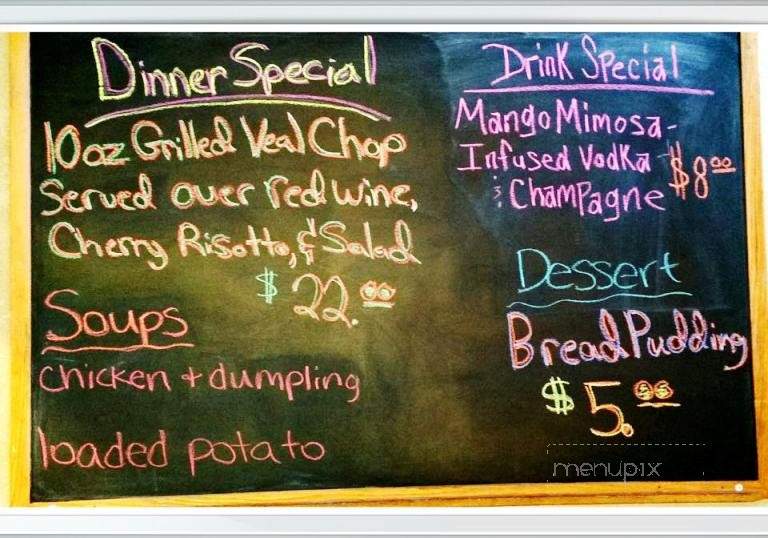 Dinner Special
10oz Grilled Veal Chop
Served over red wine,
Cherry Risotto, & Salad
$22.00
Soups
chicken + dumpling
loaded potato
Drink Special
Mango Mimosa-
Infused Vodka $8.00
& Champagne
Dessert
Bread Pudding
$5.95
menupix